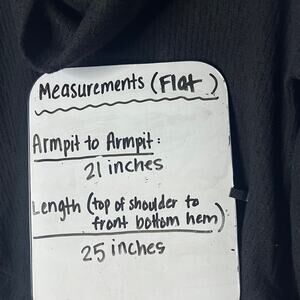 Measurements (Flat)
Armpit to Armpit:
21 inches
Length (top of shoulder to
front bottom hem)
25 inches